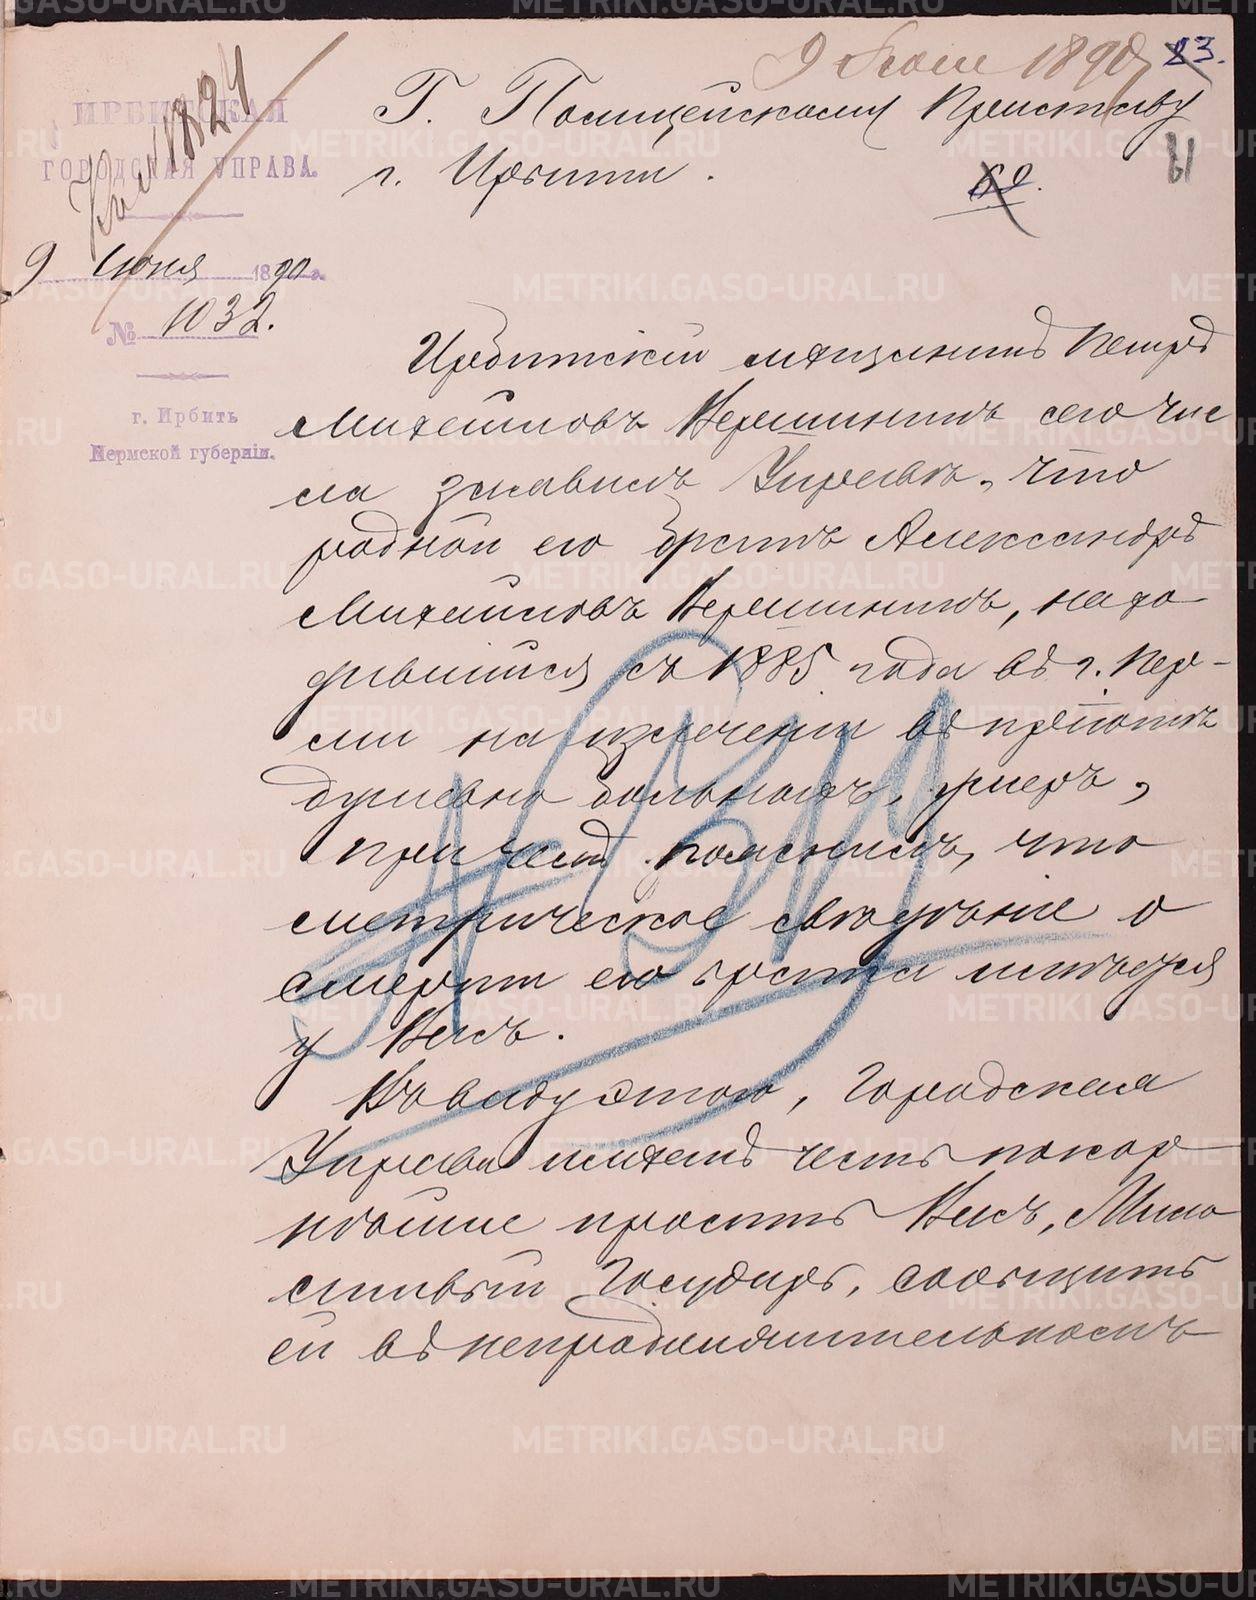 9 Июня 1890 г.
23.
Г. Полицейскому Приставу
г. Ирбити.
69.
ИРБИТСКАЯ
ГОРОДСКАЯ УПРАВА.
9 Июня 1890 г.
№ 1032.
г. Ирбить
Пермской губерніи.
Ирбитскій мѣщанинъ Петръ
Михайловъ Верешининъ сего чис
ла заявилъ Управѣ, что
родной его братъ Александръ
Михайловъ Верешининъ, нахо
дившійся съ 1885 года въ г. Пер-
ми на излеченіи въ пріютѣ
душевно больныхъ, умеръ,
при чемъ пояснилъ, что
метрическое свѣдѣніе о
смерти его брата имѣется
у Васъ.
Въ виду этого, Городская
Управа имѣетъ честь покор
нѣйше просить Васъ, Мило
стивый Государь, сообщить
ей въ непродолжительномъ
METRIKI.GASO-URAL.RU